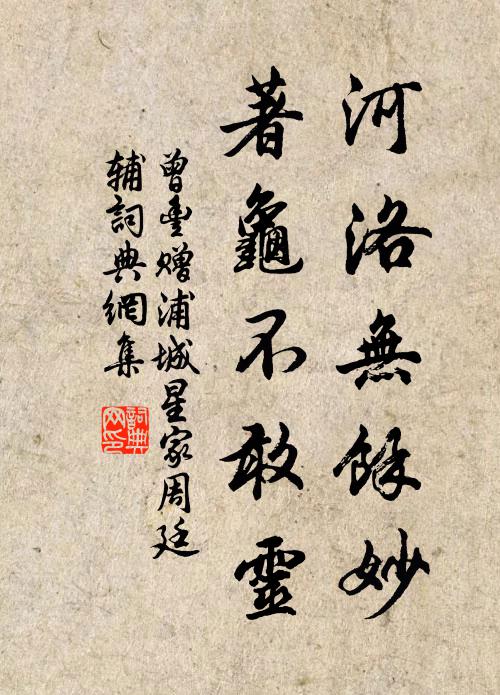 河洛無餘妙
著龜不敢靈
曾豐贈浦城星家周廷
輔詞典網集
詞典網印